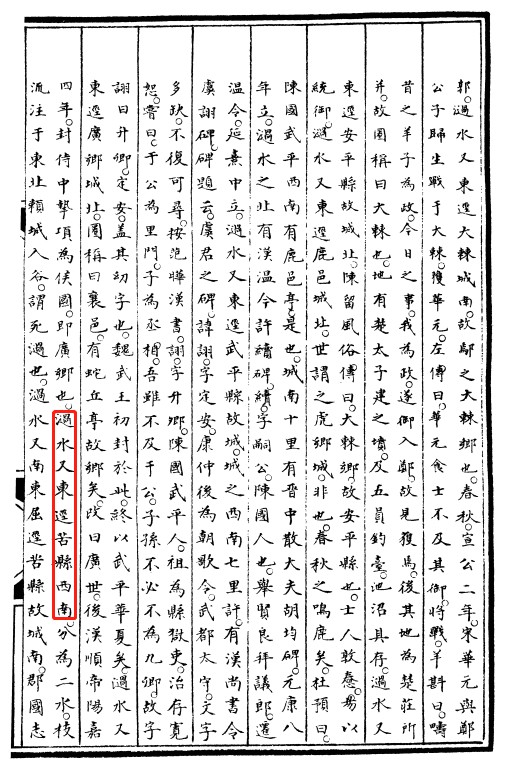 郭。濄水又東逕大棘城南。故鄢之大棘鄉也。春秋。宣公二年。宋華元與鄭
公子歸生戰于大棘。獲華元。左傳曰。華元食士不及其御。將戰。羊斟曰。疇
昔之羊子為政。今日之事。我為政。遂御入鄭。故見獲焉。後其地為楚莊所
并。故圈稱曰大棘也。地有楚太子建之墳。及五員釣臺。池沼具存。濄水又
東逕安平縣故城北。陳留風俗傳曰。大棘鄉。故安平縣也。士人敦慤。易以
統御。濄水又東逕鹿邑城北。世謂之虎鄉城。非也。春秋之鳴鹿矣。杜預曰。
陳國武平西南有鹿邑亭。是也。城南十里有晉中散大夫胡均碑。元康八
年立。濄水之北有漢溫令許續碑。續字嗣公。陳國人也。舉賢良。拜議郎。遷
溫令。延熹中立。濄水又東逕武平縣故城。城之西南七里許。有漢尚書令
虞詡碑。碑題云。虞君之碑。諱詡。字定安。虞仲後。為朝歌令。武都太守。文字
多缺。不復可尋。按范曄漢書。詡字升卿。陳國武平人。祖為縣獄吏。治存寬
恕。嘗曰。于公為里門。子為丞相。吾雖不及于公。子孫不必不為九卿。故字
詡曰升卿。定安。蓋其幼字也。魏武王初封於此。終以武平華夏矣。濄水又
東逕廣鄉城北。圈稱曰。襄邑有蛇丘亭。故鄉矣。改曰廣世。後漢順帝陽嘉
四年。封侍中摯項為侯國。即廣鄉也。濄水又東逕苦縣西南。分為二水。枝
流注于東北賴城入谷。謂死濄也。濄水又南東屈逕苦縣故城南。郡國志